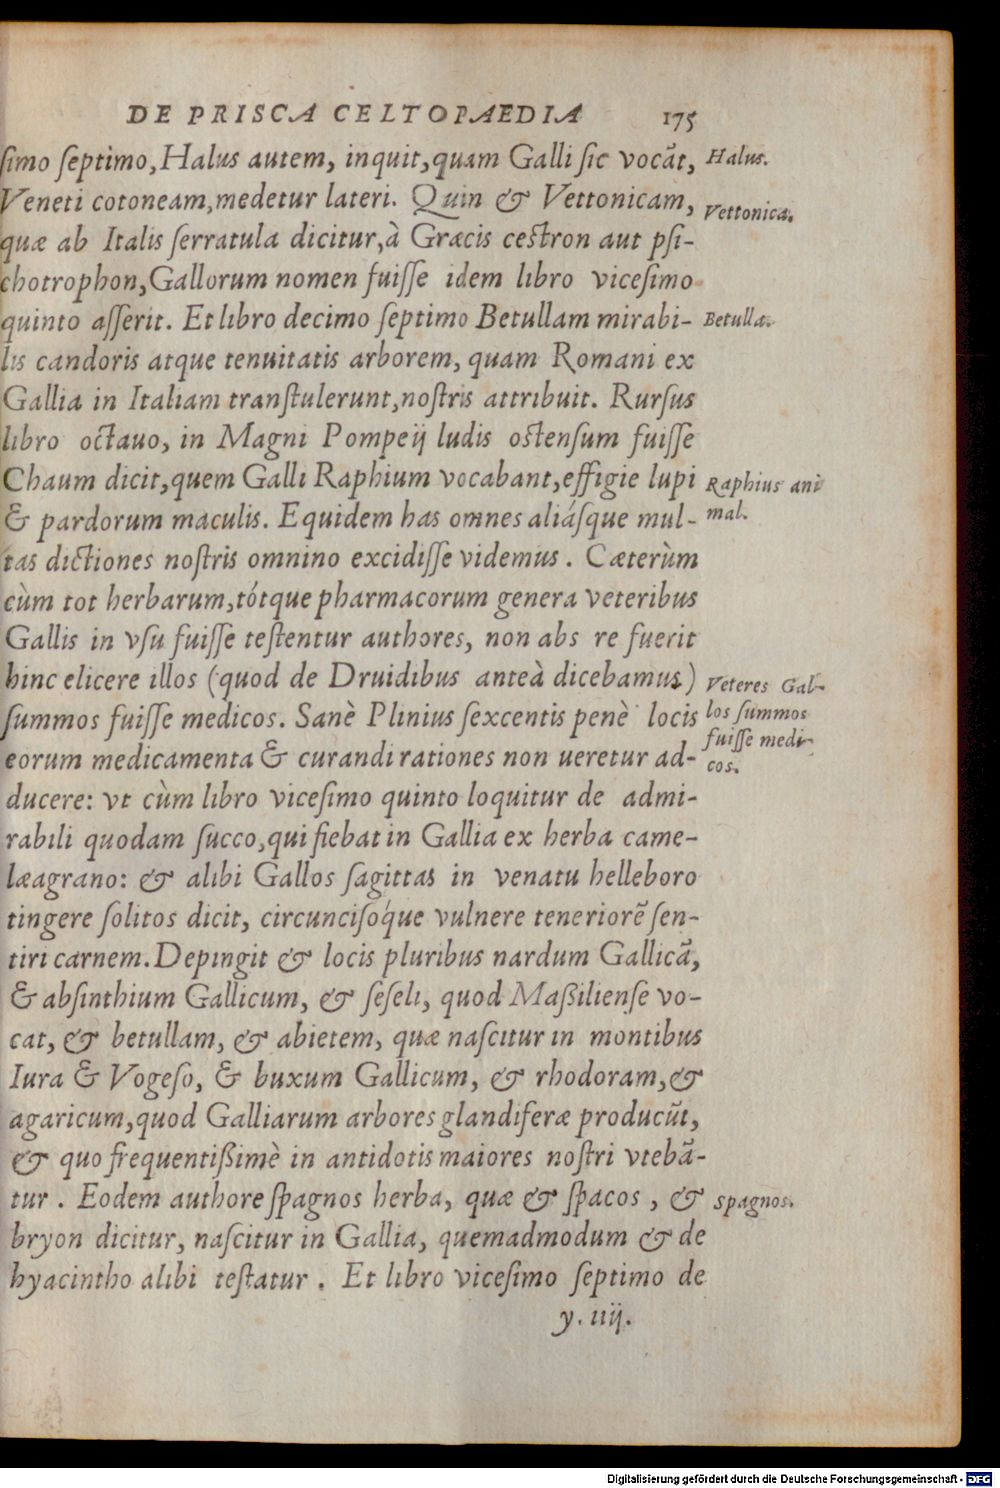 DE PRISCA CELTOPAEDIA 175
ſimo ſeptimo, Halus autem, inquit, quam Galli ſic vocāt,
Halus.
Veneti cotoneam, medetur lateri. Quin & Vettonicam,
Vettonica.
quæ ab Italis ſerratula dicitur, à Græcis ceſtron aut pſi-
chotrophon, Gallorum nomen fuiſſe idem libro viceſimo
quinto aſſerit. Et libro decimo ſeptimo Betullam mirabi-
Betulla.
lis candoris atque tenuitatis arborem, quam Romani ex
Gallia in Italiam tranſtulerunt, noſtris attribuit. Rurſus
libro octauo, in Magni Pompeij ludis oſtenſum fuiſſe
Chaum dicit, quem Galli Raphium vocabant, effigie lupi
Raphius ani
& pardorum maculis. Equidem has omnes aliáſque mul-
mal.
tas dictiones noſtris omnino excidiſſe videmus. Cæterùm
cùm tot herbarum, tótque pharmacorum genera veteribus
Gallis in vſu fuiſſe teſtentur authores, non abs re fuerit
hinc elicere illos (quod de Druidibus anteà dicebamus)
Veteres Gal-
ſummos fuiſſe medicos. Sanè Plinius ſexcentis penè locis
los ſummos
fuiſſe medi-
eorum medicamenta & curandi rationes non ueretur ad-
cos.
ducere: vt cùm libro viceſimo quinto loquitur de admi-
rabili quodam ſucco, qui fiebat in Gallia ex herba came-
læagrano: & alibi Gallos ſagittas in venatu helleboro
tingere ſolitos dicit, circunciſóque vulnere teneriorē ſen-
tiri carnem. Depingit & locis pluribus nardum Gallicā,
& abſinthium Gallicum, & ſeſeli, quod Maßilienſe vo-
cat, & betullam, & abietem, quæ naſcitur in montibus
Iura & Vogeſo, & buxum Gallicum, & rhodoram, &
agaricum, quod Galliarum arbores glandiferæ producūt,
& quo frequentißimè in antidotis maiores noſtri vtebā-
tur. Eodem authore ſpagnos herba, quæ & ſpacos, &
Spagnos.
bryon dicitur, naſcitur in Gallia, quemadmodum & de
hyacintho alibi teſtatur. Et libro viceſimo ſeptimo de
y. iiij.
Digitalisierung gefördert durch die Deutsche Forschungsgemeinschaft - DFG